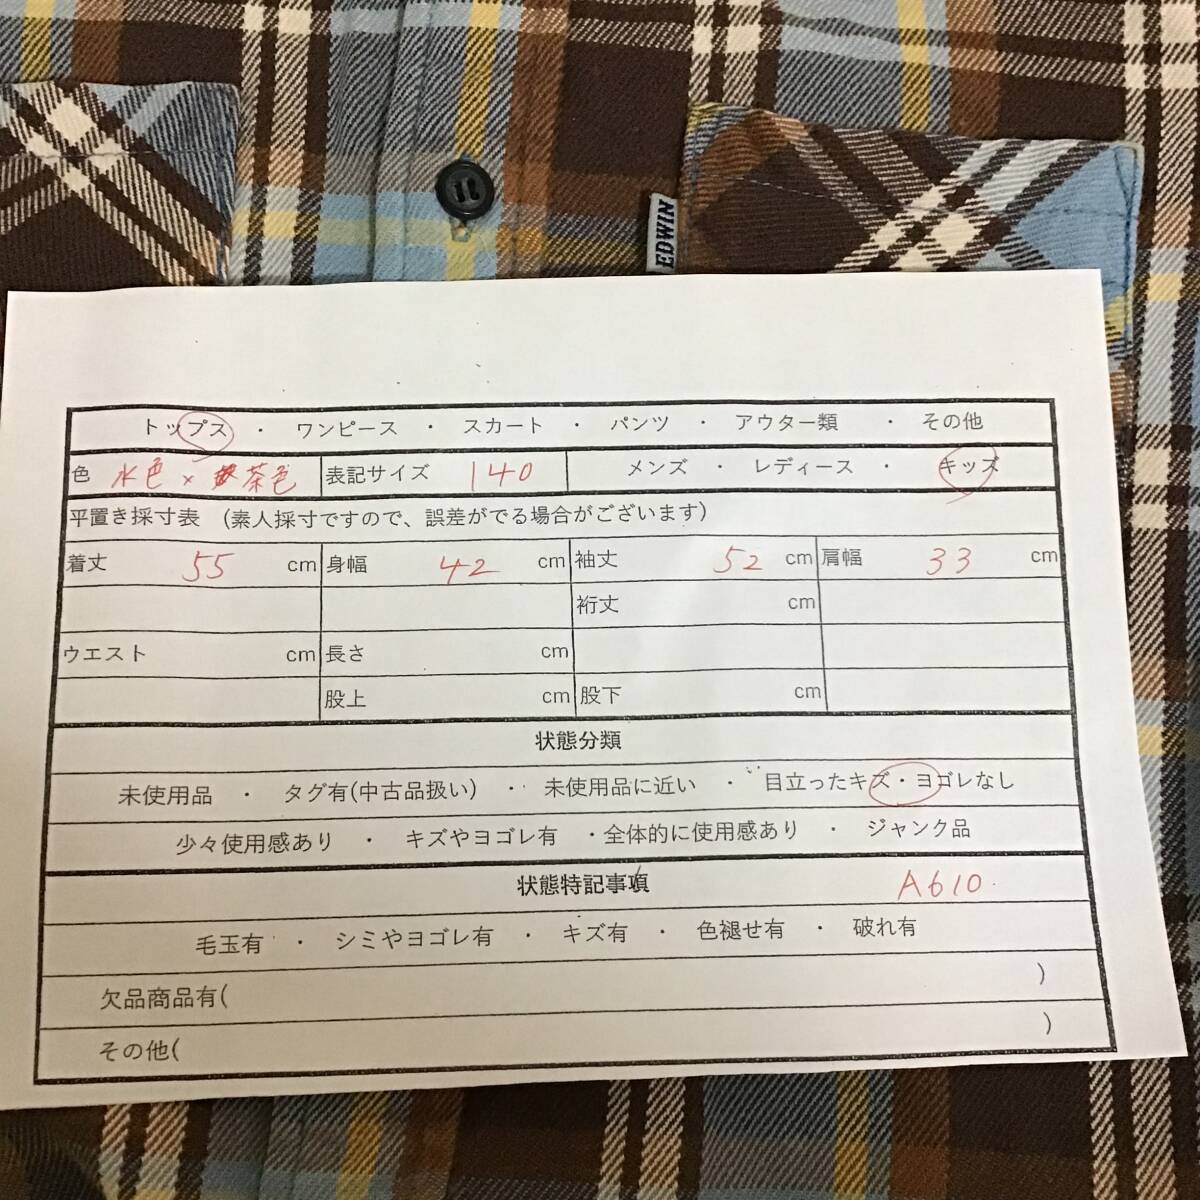 EDWIN
トップス ・ ワンピース ・ スカート ・ パンツ ・ アウター類 ・ その他
色 水色×茶色 表記サイズ 140 メンズ ・ レディース ・ キッズ
平置き採寸表 (素人採寸ですので、誤差がでる場合がございます)
着丈 55 cm 身幅 42 cm 袖丈 52 cm 肩幅 33 cm
裄丈 cm
ウエスト cm 長さ cm
股上 cm 股下 cm
状態分類
未使用品 ・ タグ有(中古品扱い) ・ 未使用品に近い ・ 目立ったキズ・ヨゴレなし
少々使用感あり ・ キズやヨゴレ有 ・全体的に使用感あり ・ ジャンク品
状態特記事項 A610.
毛玉有 ・ シミやヨゴレ有 ・ キズ有 ・ 色褪せ有 ・ 破れ有
欠品商品有( )
その他( )